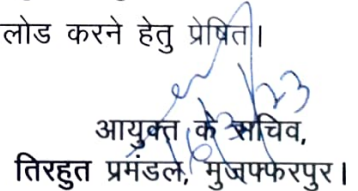 लोड करने हेतु प्रेषित।
आयुक्त के सचिव,
तिरहुत प्रमंडल, मुजफ्फरपुर।